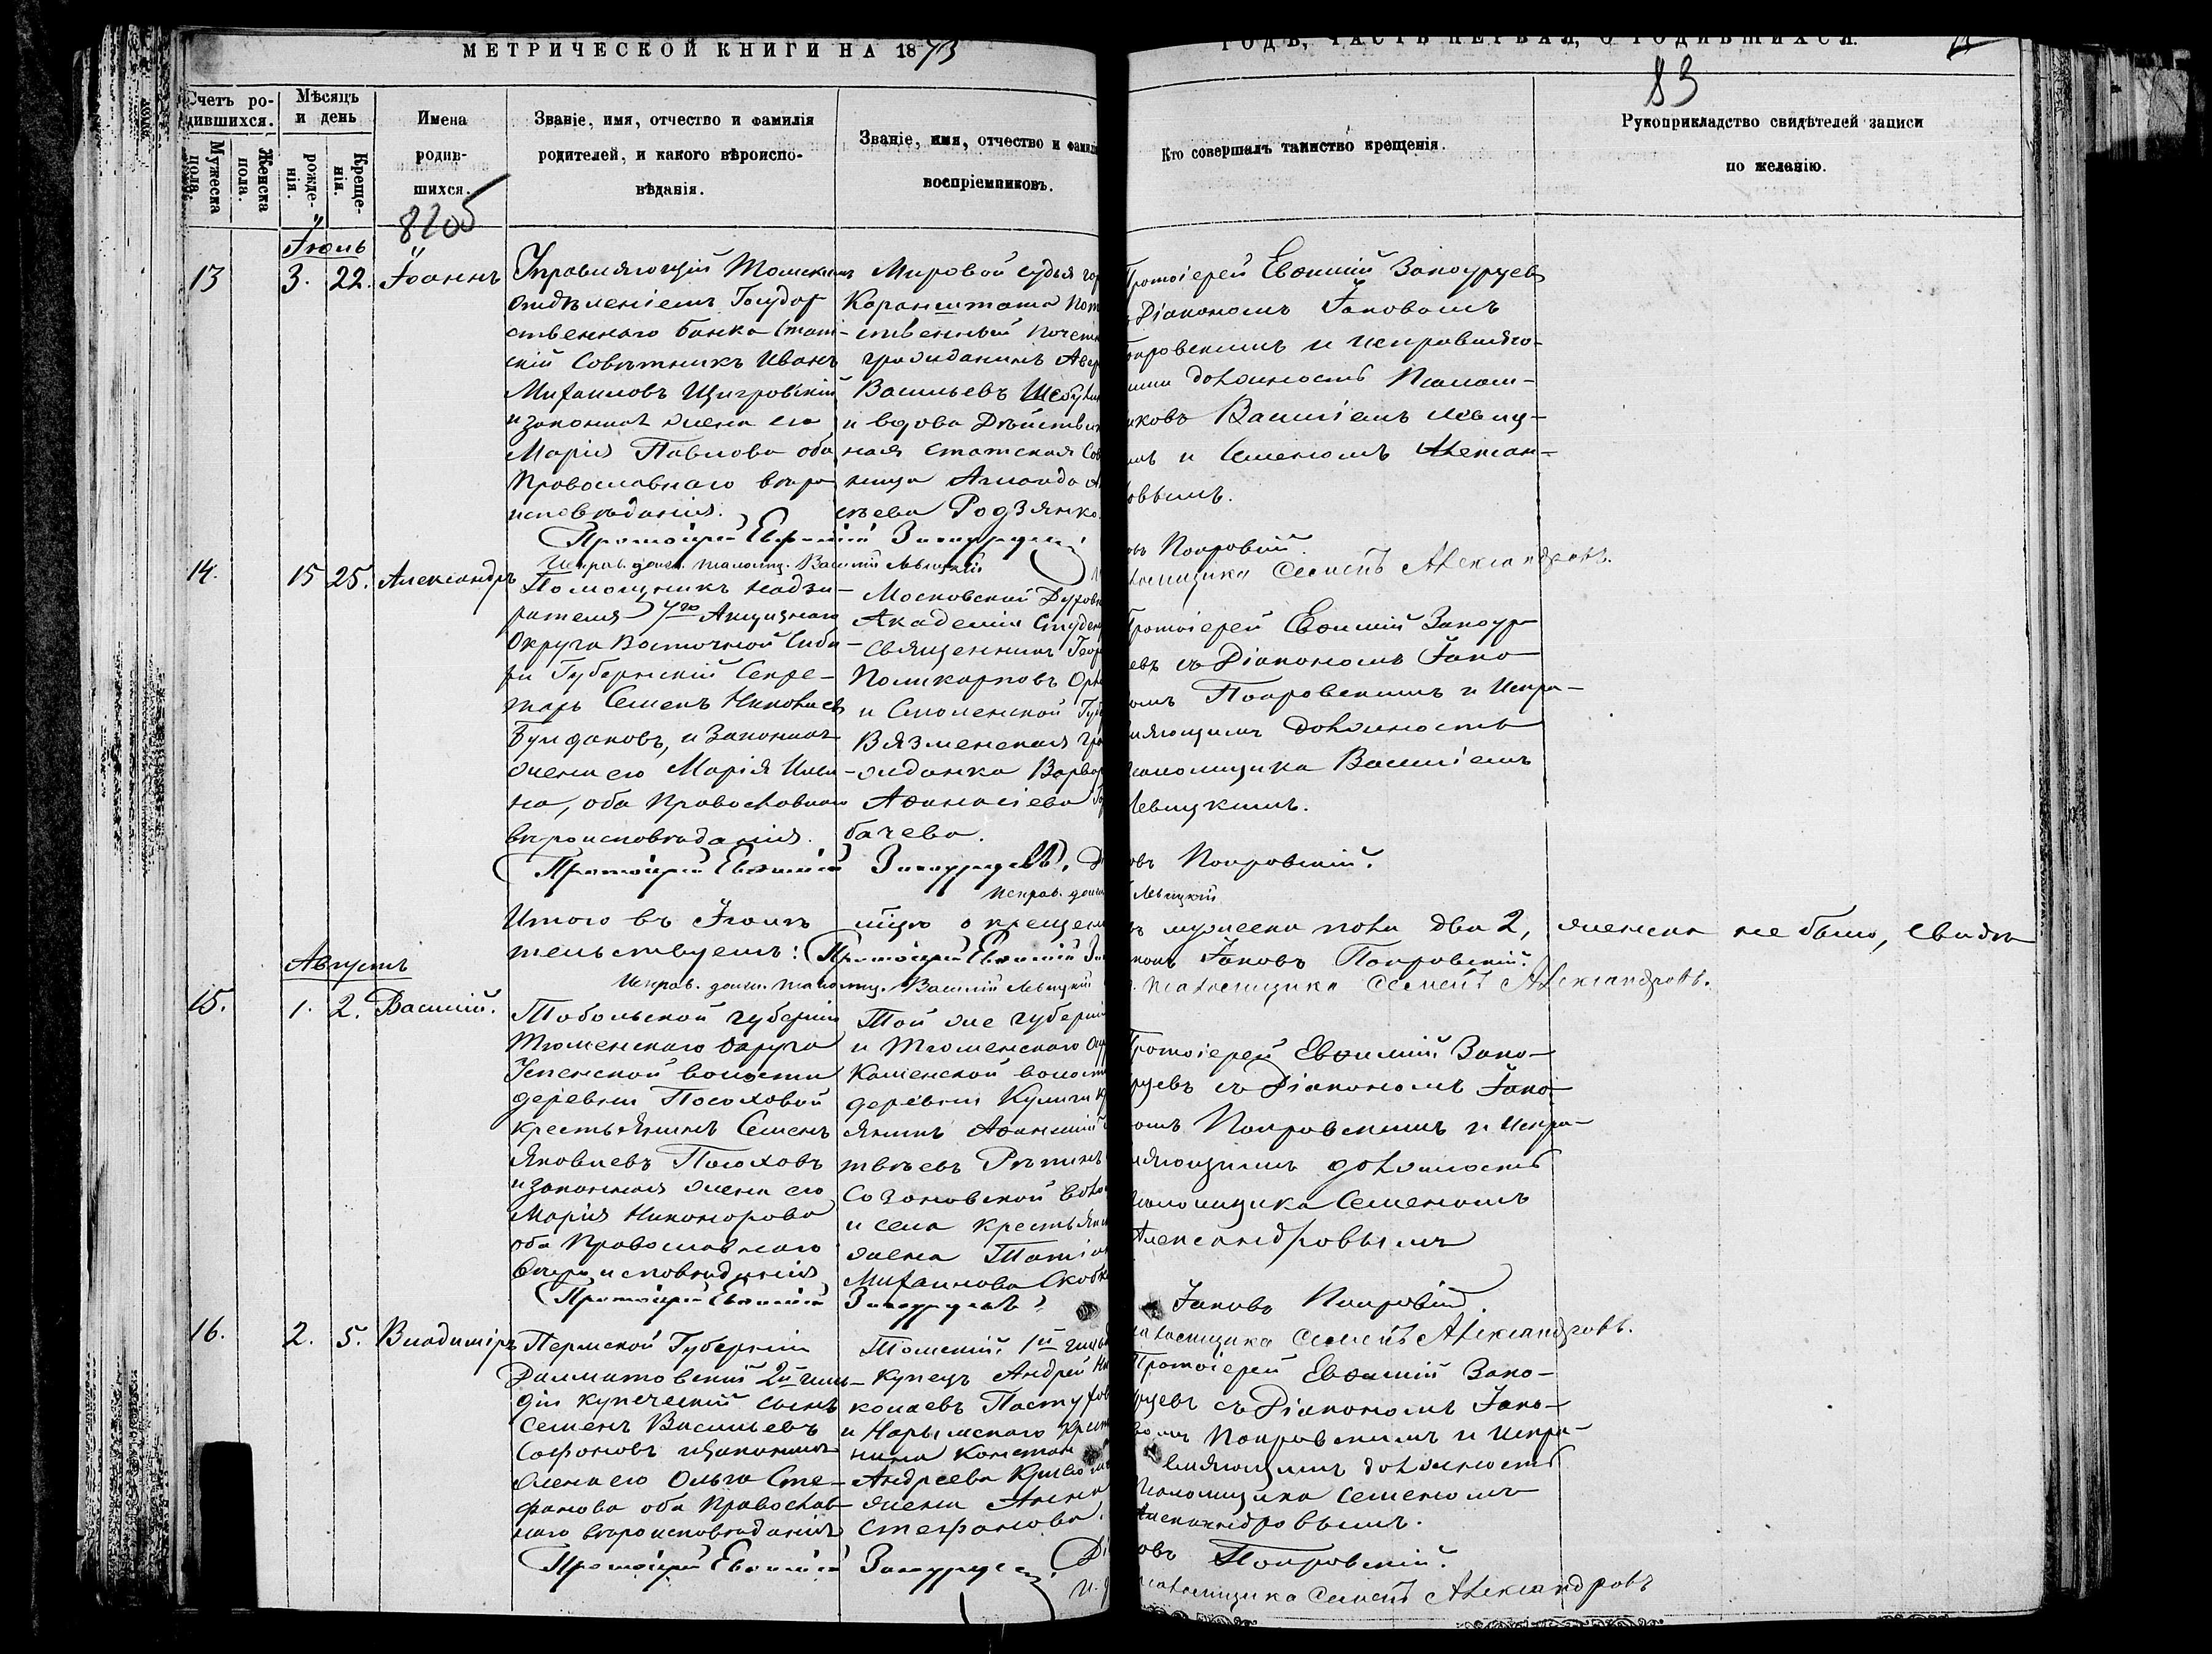 МЕТРИЧЕСКОЙ КНИГИ НА 1873
ГОДЪ, ЧАСТЬ ПЕРВАЯ, О РОДИВШИХСЯ.
83
Счетъ ро-
дившихся.
Мужеска
пола.
Женска
пола.
Мѣсяцъ
и день
рожде-
нія.
Креще-
нія.
Имена
родив-
шихся.
8205
Званіе, имя, отчество и фамилія
родителей, и какого вѣроиспо-
вѣданія.
Званіе, имя, отчество и фамил
воспріемниковъ.
Кто совершалъ таинство крещенія.
Рукоприкладство свидѣтелей записи
по желанію.
Іюль
13
3.
22.
Іоаннъ
Управляющій Томскимъ
отдѣленіемъ Государ
ственнаго банка Стат-
скій Совѣтникъ Иванъ
Михаиловъ Щигровскій
и законная жена его
Марія Павлова оба
Православнаго вѣро
исповѣданія.
Мировой судья гор
Кронштата Пот
ственный почетн
гражданинъ Авер
Васильевъ
и вдова Дѣйстви
ная статская Сов
ница Аманда
сѣева Родзянко.
Протоіерей Евѳимій Закоурцев
Діакономъ Іаковомъ
окровскимъ и исправляю-
ими должность Псалом-
иковъ Василіемъ Левиц-
мъ и Семеномъ Алексан-
овымъ.
Протоіерей Евѳимій Закоурцевъ
овъ Покровскій.
Исправ. долж. псаломщ. Василій Левицкій
ломщика Семенъ Александровъ.
14.
15
25.
Александръ
Помощникъ надзи-
рателя 4го Акцизнаго
Округа Восточной Сиби-
ри Губернскій Секре-
тарь Семенъ Николаевъ
Булдаковъ, и законная
жена его Марія Ильи
на, оба Православнаго
вѣроисповѣданія.
Московской Духовн
Академіи Студен
Священникъ Геор
Поликарповъ Орл
и Смоленской Губ
Вяземская гра
жданка Варвар
Аѳанасіева Гор
бачева.
Протоіерей Евѳимій Закоур
евъ съ Діакономъ Іако
омъ Покровскимъ и Испра-
ляющимъ должность
саломщика Василіемъ
Левицкимъ.
Протоіерей Евѳимій Закоурцевъ.
овъ Покровскій.
Исправ. долж
Левицкій
Итого въ Іюлѣ мцѣ о крещен
ъ мужеска пола два 2, женска не было, свидѣ
тельствуемъ: Протоіерей Евѳимій За
конъ Іаковъ Покровскій.
Исправ. долж. псаломщ. Василій Левицкій
псаломщика Семенъ Александровъ.
Августъ
15.
1.
2.
Василій.
Тобольской губерніи
Тюменскаго округа
Успенской волости
деревни Посоховой
крестьянинъ Семенъ
Яковлевъ Посоховъ
и законная жена его
Марія Никонорова
оба Православнаго
вѣроисповѣданія
Той же губерніи
и Тюменскаго окр
Каменской волост
деревни Кулиги кр
янинъ Аѳанасій
твѣевъ Рѣтинъ
Созоновской воло
и села крестьян
жена Татіан
Михаилова Скобк
Протоіерей Евѳимій Зако-
рцевъ съ Діакономъ Іако-
омъ Покровскимъ и Испра-
ляющимъ должность
саломщика Семеномъ
Александровымъ
Протоіерей Евѳимій Закоурцевъ
Іаковъ Покровскій.
саломщика Семенъ Александровъ.
16.
2.
5.
Владиміръ
Пермской Губерніи
Далматовскій 2й гиль-
діи купеческій сынъ
Семенъ Васильевъ
Сафоновъ и законная
жена его Ольга Сте-
фанова оба Православ-
наго вѣроисповѣданія
Томскій 1й гильд
купецъ Андрей Ни
колаевъ Пастухов
и Нарымскаго
нина Констан
Андреева
жена Анна
Стефанова.
Протоіерей Евѳимій Зако-
рцевъ съ Діакономъ Іако-
вомъ Покровскимъ и Испра-
вляющимъ должность
саломщика Семеномъ
Александровымъ.
Протоіерей Евѳимій Закоурцевъ.
овъ Покровскій.
саломщика Семенъ Александровъ